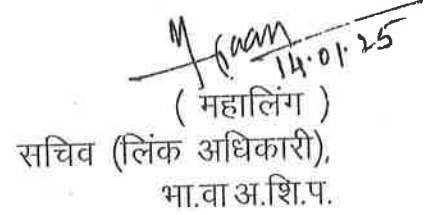 14.01.25
( महालिंग )
सचिव (लिंक अधिकारी),
भा.वा अ.शि.प.